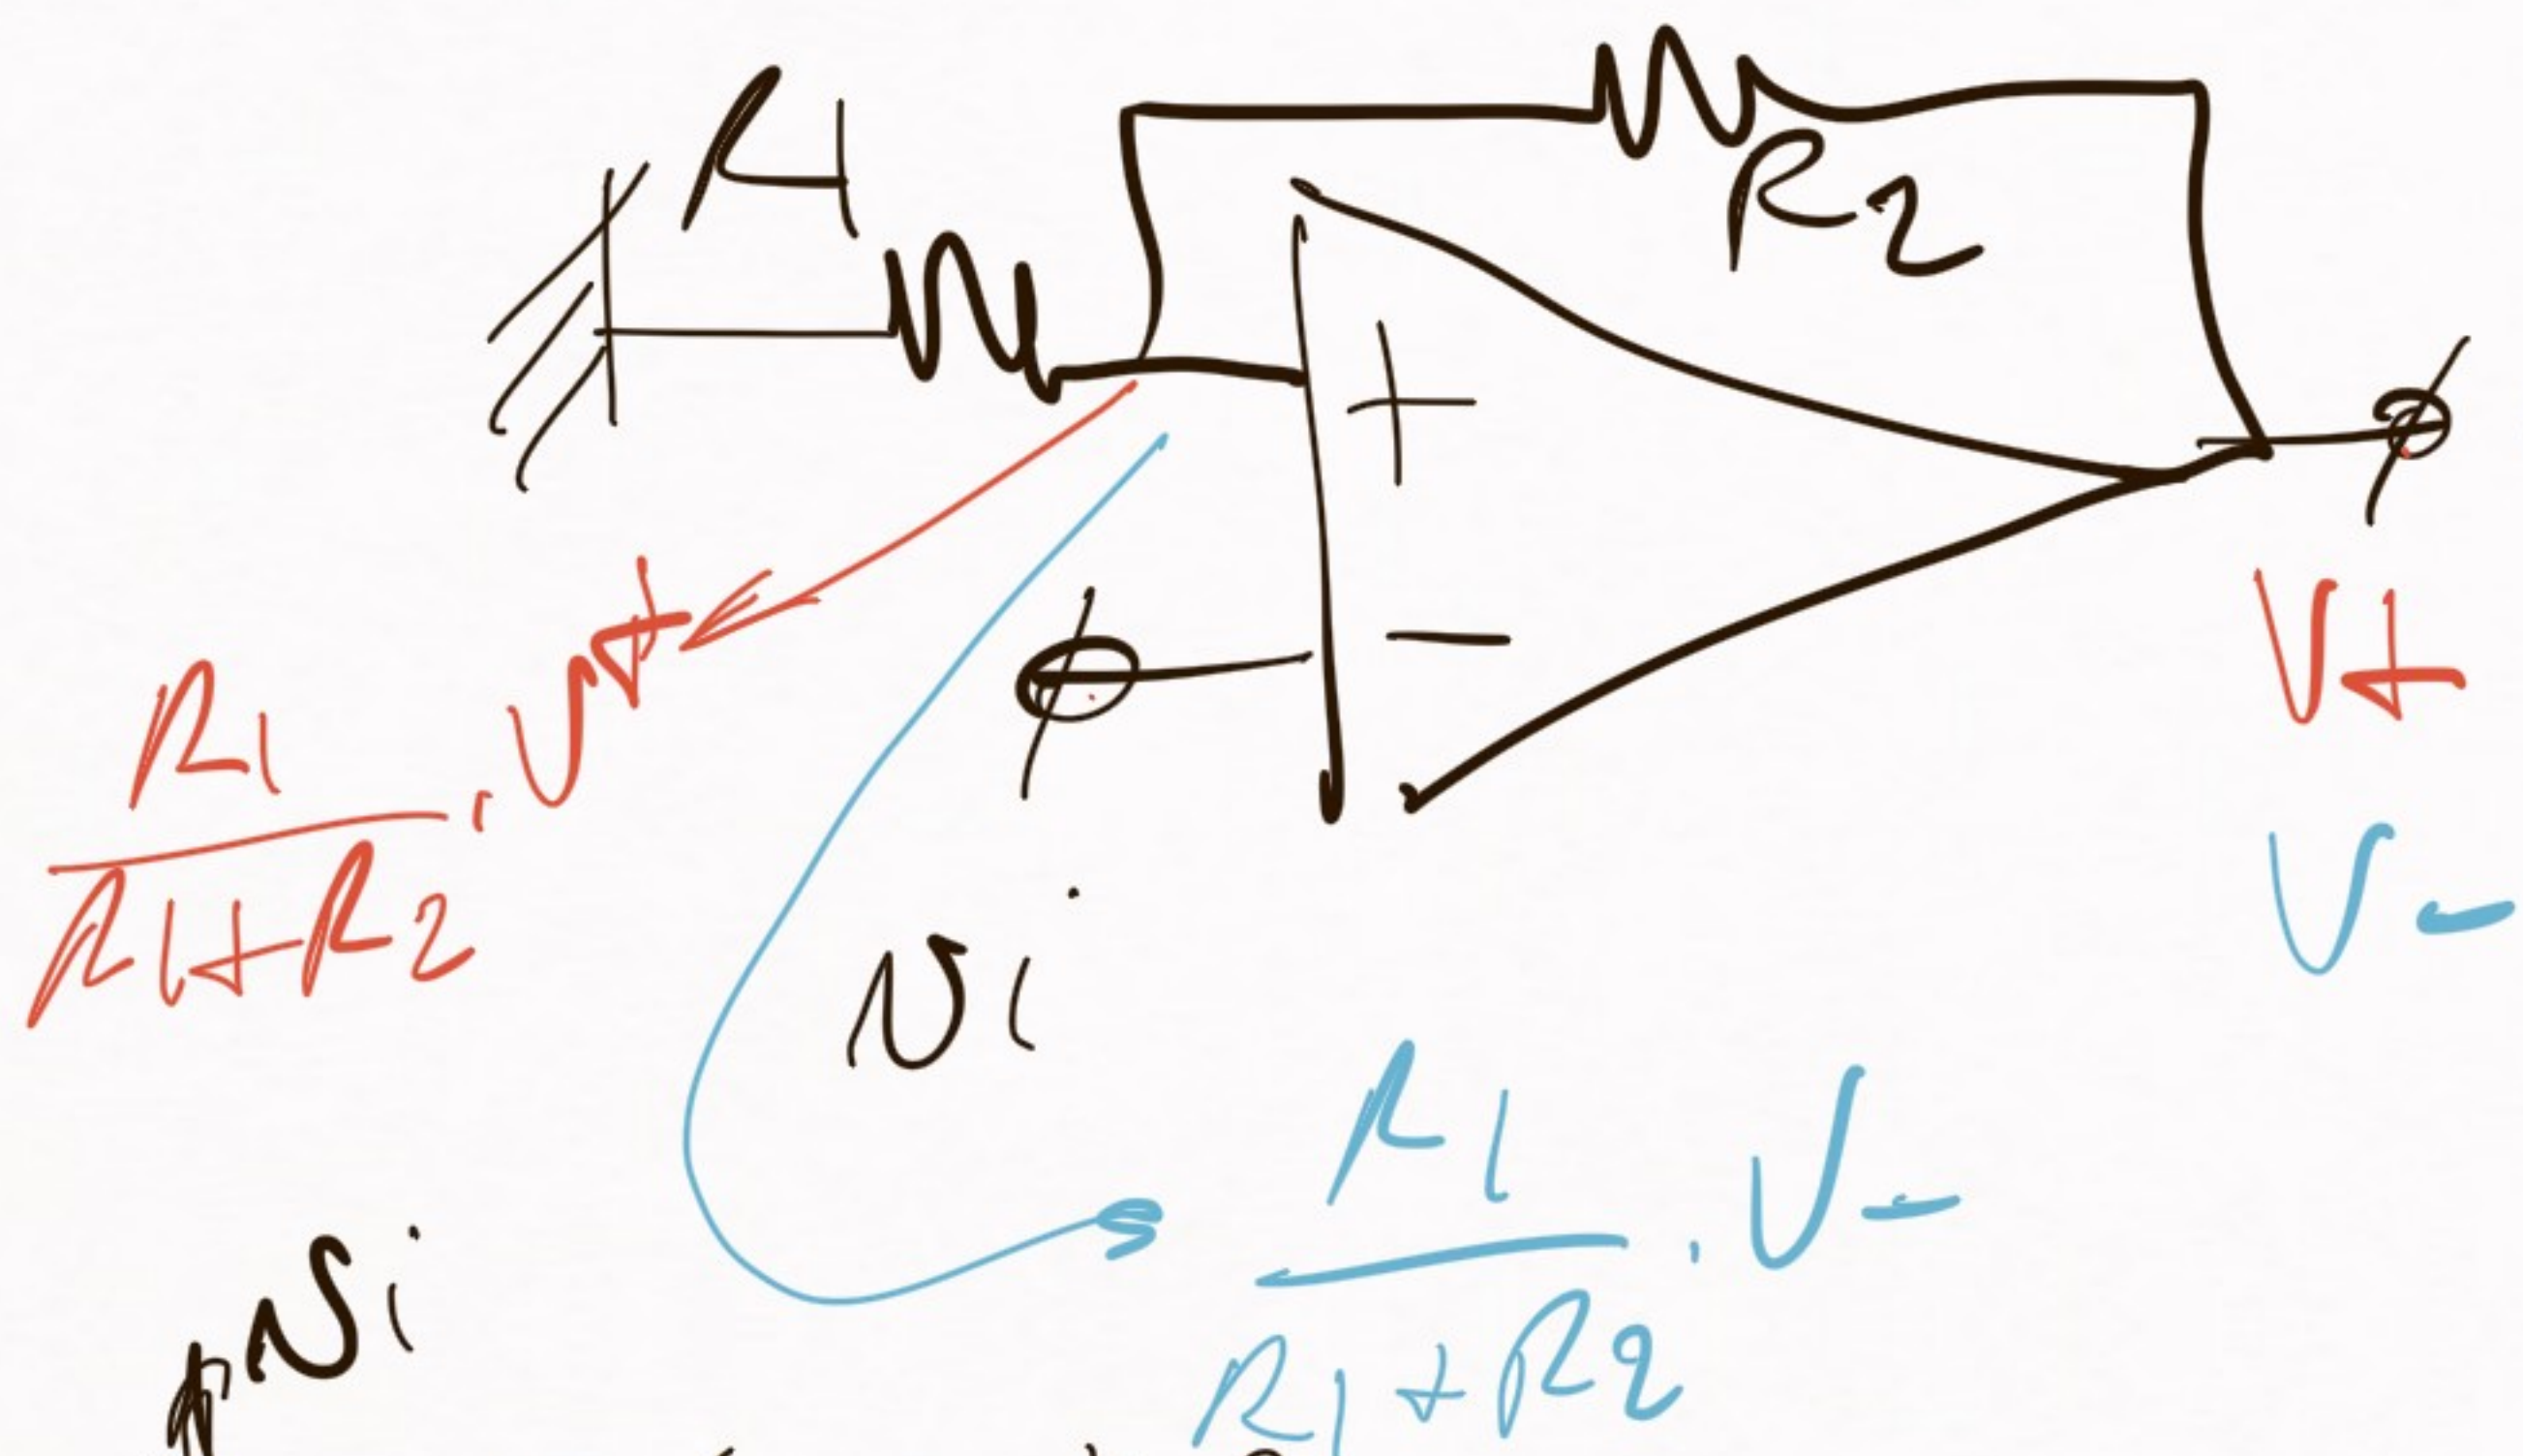 R1
R2
+
−
V+
V−
R1 / R1+R2 . V+
vi
R1 / R1+R2 . V−
vi